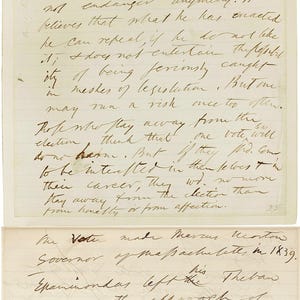 not endanger anything. It
believes that what he has enacted
he can repeal, if he do not like
it; & does not entertain the possibil
ity of being seriously caught
in meshes of legislation. But one
may run a risk once too often.
Those who stay away from the
election think that one vote will
do no harm. But if they
to be interested in themselves &
their career, they wd. no more
stay away from the election than
from honesty or from affection.
One Vote made Marcus Morton
Governor of Massachusetts in 1839.
Epaminondas left his Theban